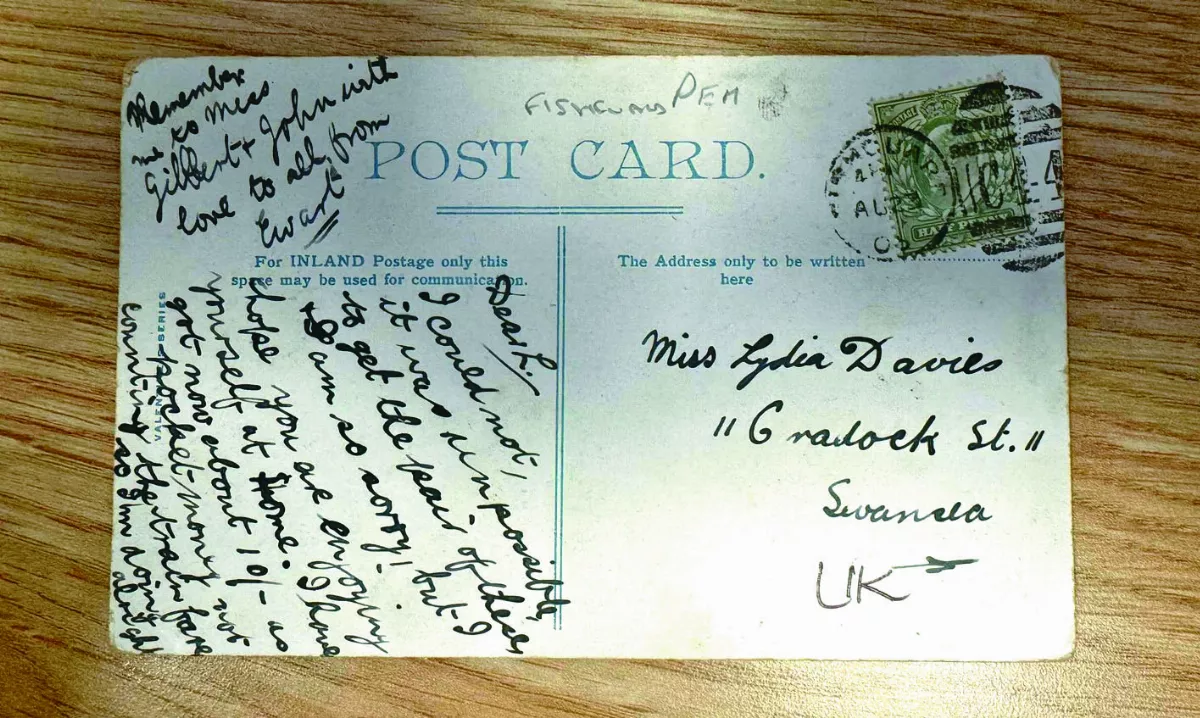 FISHGUARD PEM
POST CARD.
For INLAND Postage only this
space may be used for communication.
The Address only to be written
here
VALENTINES SERIES
HALF PENNY
AU
Remember
me to Miss
Gilbert + John with
love to all, from
Ewart
Dear L.
I could not,
it was unpossible,
to get the pair of these
I am so sorry! but I
hope you are enjoying
yourself at home. I have
got now about 10/- as
pocket-money not
counting the train fare
so I'm doing alright
Miss Lydia Davies
"Cradock St."
Swansea
UK